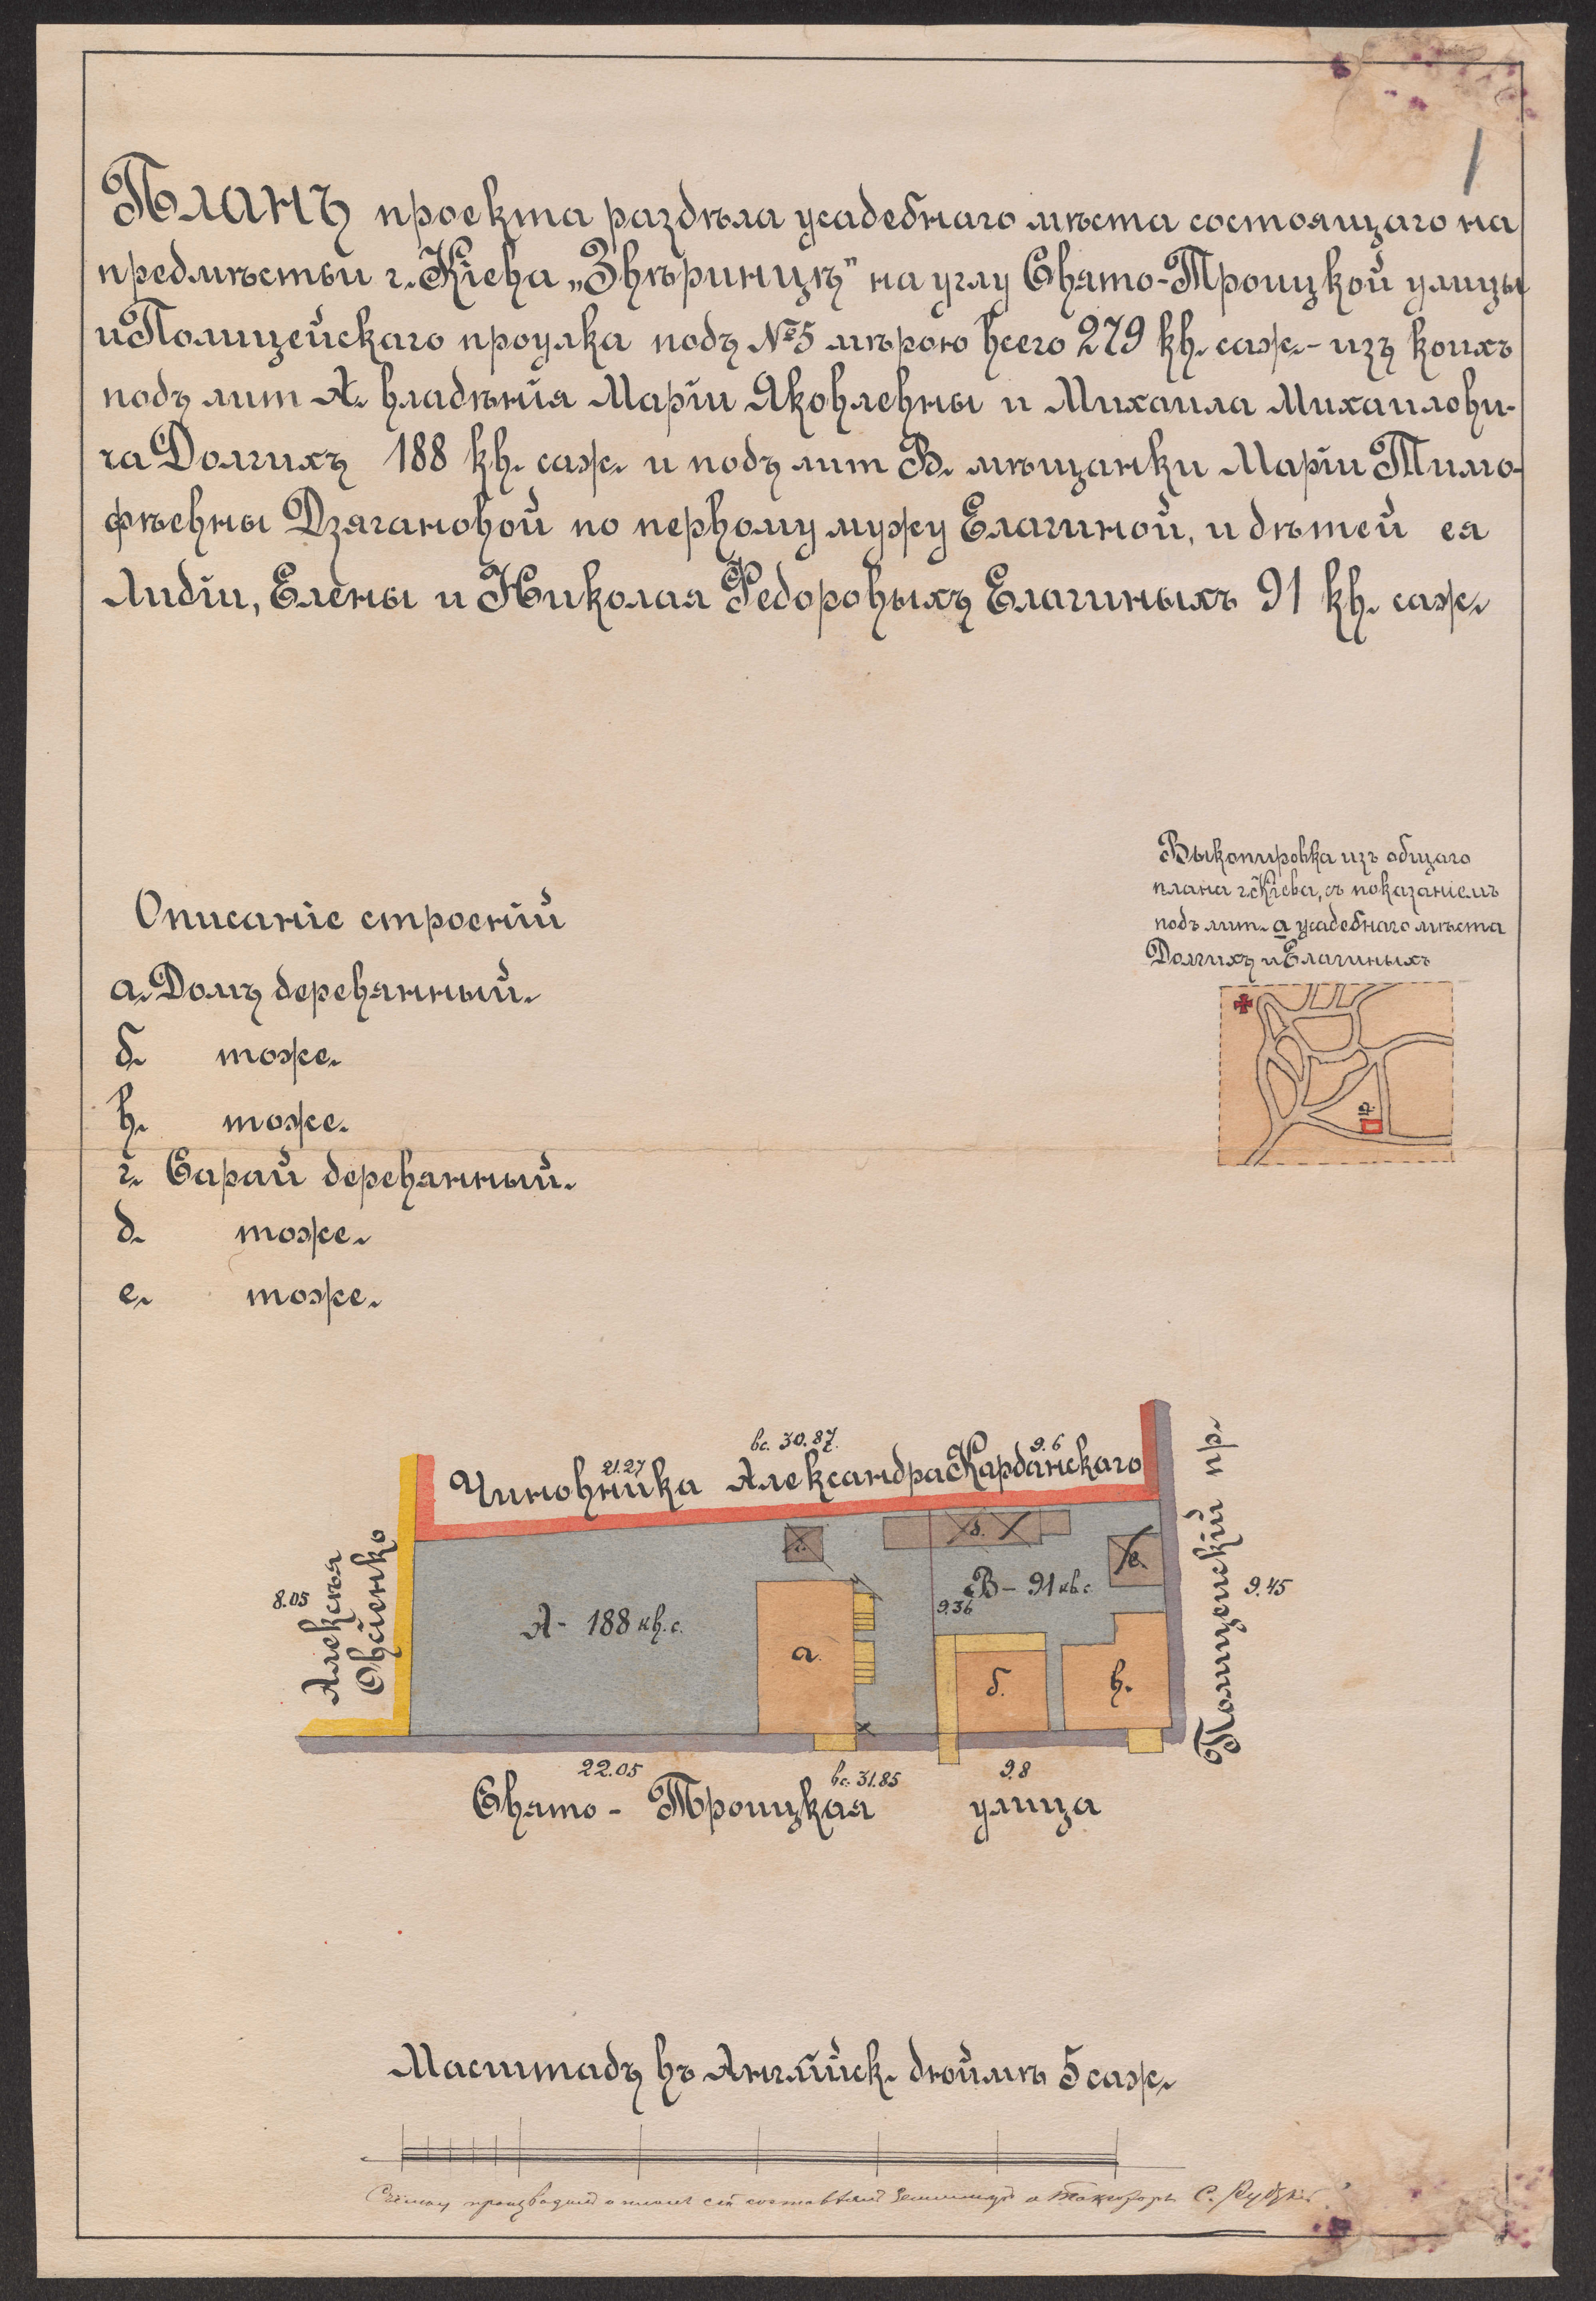 1
Планъ проекта раздѣла усадебнаго мѣста состоящаго на
предмѣстьи г. Кіева „Звѣриницѣ" на углу Свято-Троицкой улицы
и Полицейскаго проулка подъ № 5 мѣрою всего 279 кв. саж. - изъ коихъ
подъ лит А. владѣнія Маріи Яковлевны и Михаила Михаилови-
ча Долгихъ 188 кв. саж. и подъ лит В. мѣщанки Маріи Тимо-
фѣевны Дзягановой по первому мужу Елагиной, и дѣтей ея
Лидіи, Елены и Николая Федоровыхъ Елагиныхъ 91 кв. саж.
Выкопировка изъ общаго
плана г. Кіева, съ показаніемъ
подъ лит. а усадебнаго мѣста
Долгихъ и Елагиныхъ
а
Описаніе строеній
а. Домъ деревянный.
б. тоже.
в. тоже.
г. Сарай деревянный.
д. тоже.
е. тоже.
вс. 30.87.
21.27
9.6
Чиновника Александра Карданскаго
Алексѣя
Овсіенко
8.05
г.
д.
е.
А - 188 кв. с.
В - 91 кв. с.
9.36
а.
б.
в.
Полицейскій пр.
9.45
22.05
вс. 31.85
9.8
Свято - Троицкая улица
Масштабъ въ Англійск. дюймѣ 5 саж.
Съемку производилъ и планъ сей составлялъ Землемѣръ и Таксаторъ С.